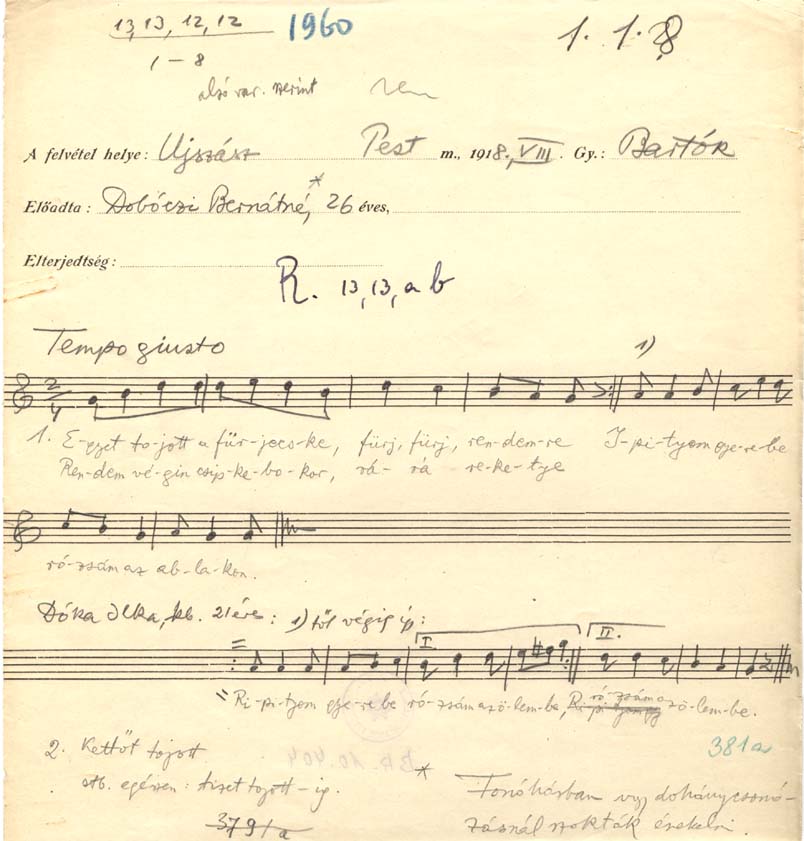 13, 13, 12, 12 1960 1. 1. 28
1 – 8
alsó var. szerint
A felvétel helye: Ujszász Pest m., 1918., VIII. Gy.: Bartók
Előadta: Dobóczi Bernátné,* 26 éves,
Elterjedtség:
R. 13, 13, a b
Tempo giusto
1)
2/4
1. E-gyet to-jott a für-jecs-ke, fürj, fürj, ren-dem-re I-pi-tyom gye-re-be
Ren-dem vé-gin csip-ke-bo-kor, rá- rá re-ke-tye
ró-zsám az ab-la-kon.
Dóka Ilka, kb. 21 éves: 1) től végig így:
I. II.
Ri-pi-tyom gye-re be ró-zsám a zö-lem-be, ró-zsám a zö-lem-be.
2. Kettőt tojott 381a
stb. egészen: tizet tojott-ig.
* Fonóházban vagy dohánycsomó-
379/a zásnál szokták énekelni.